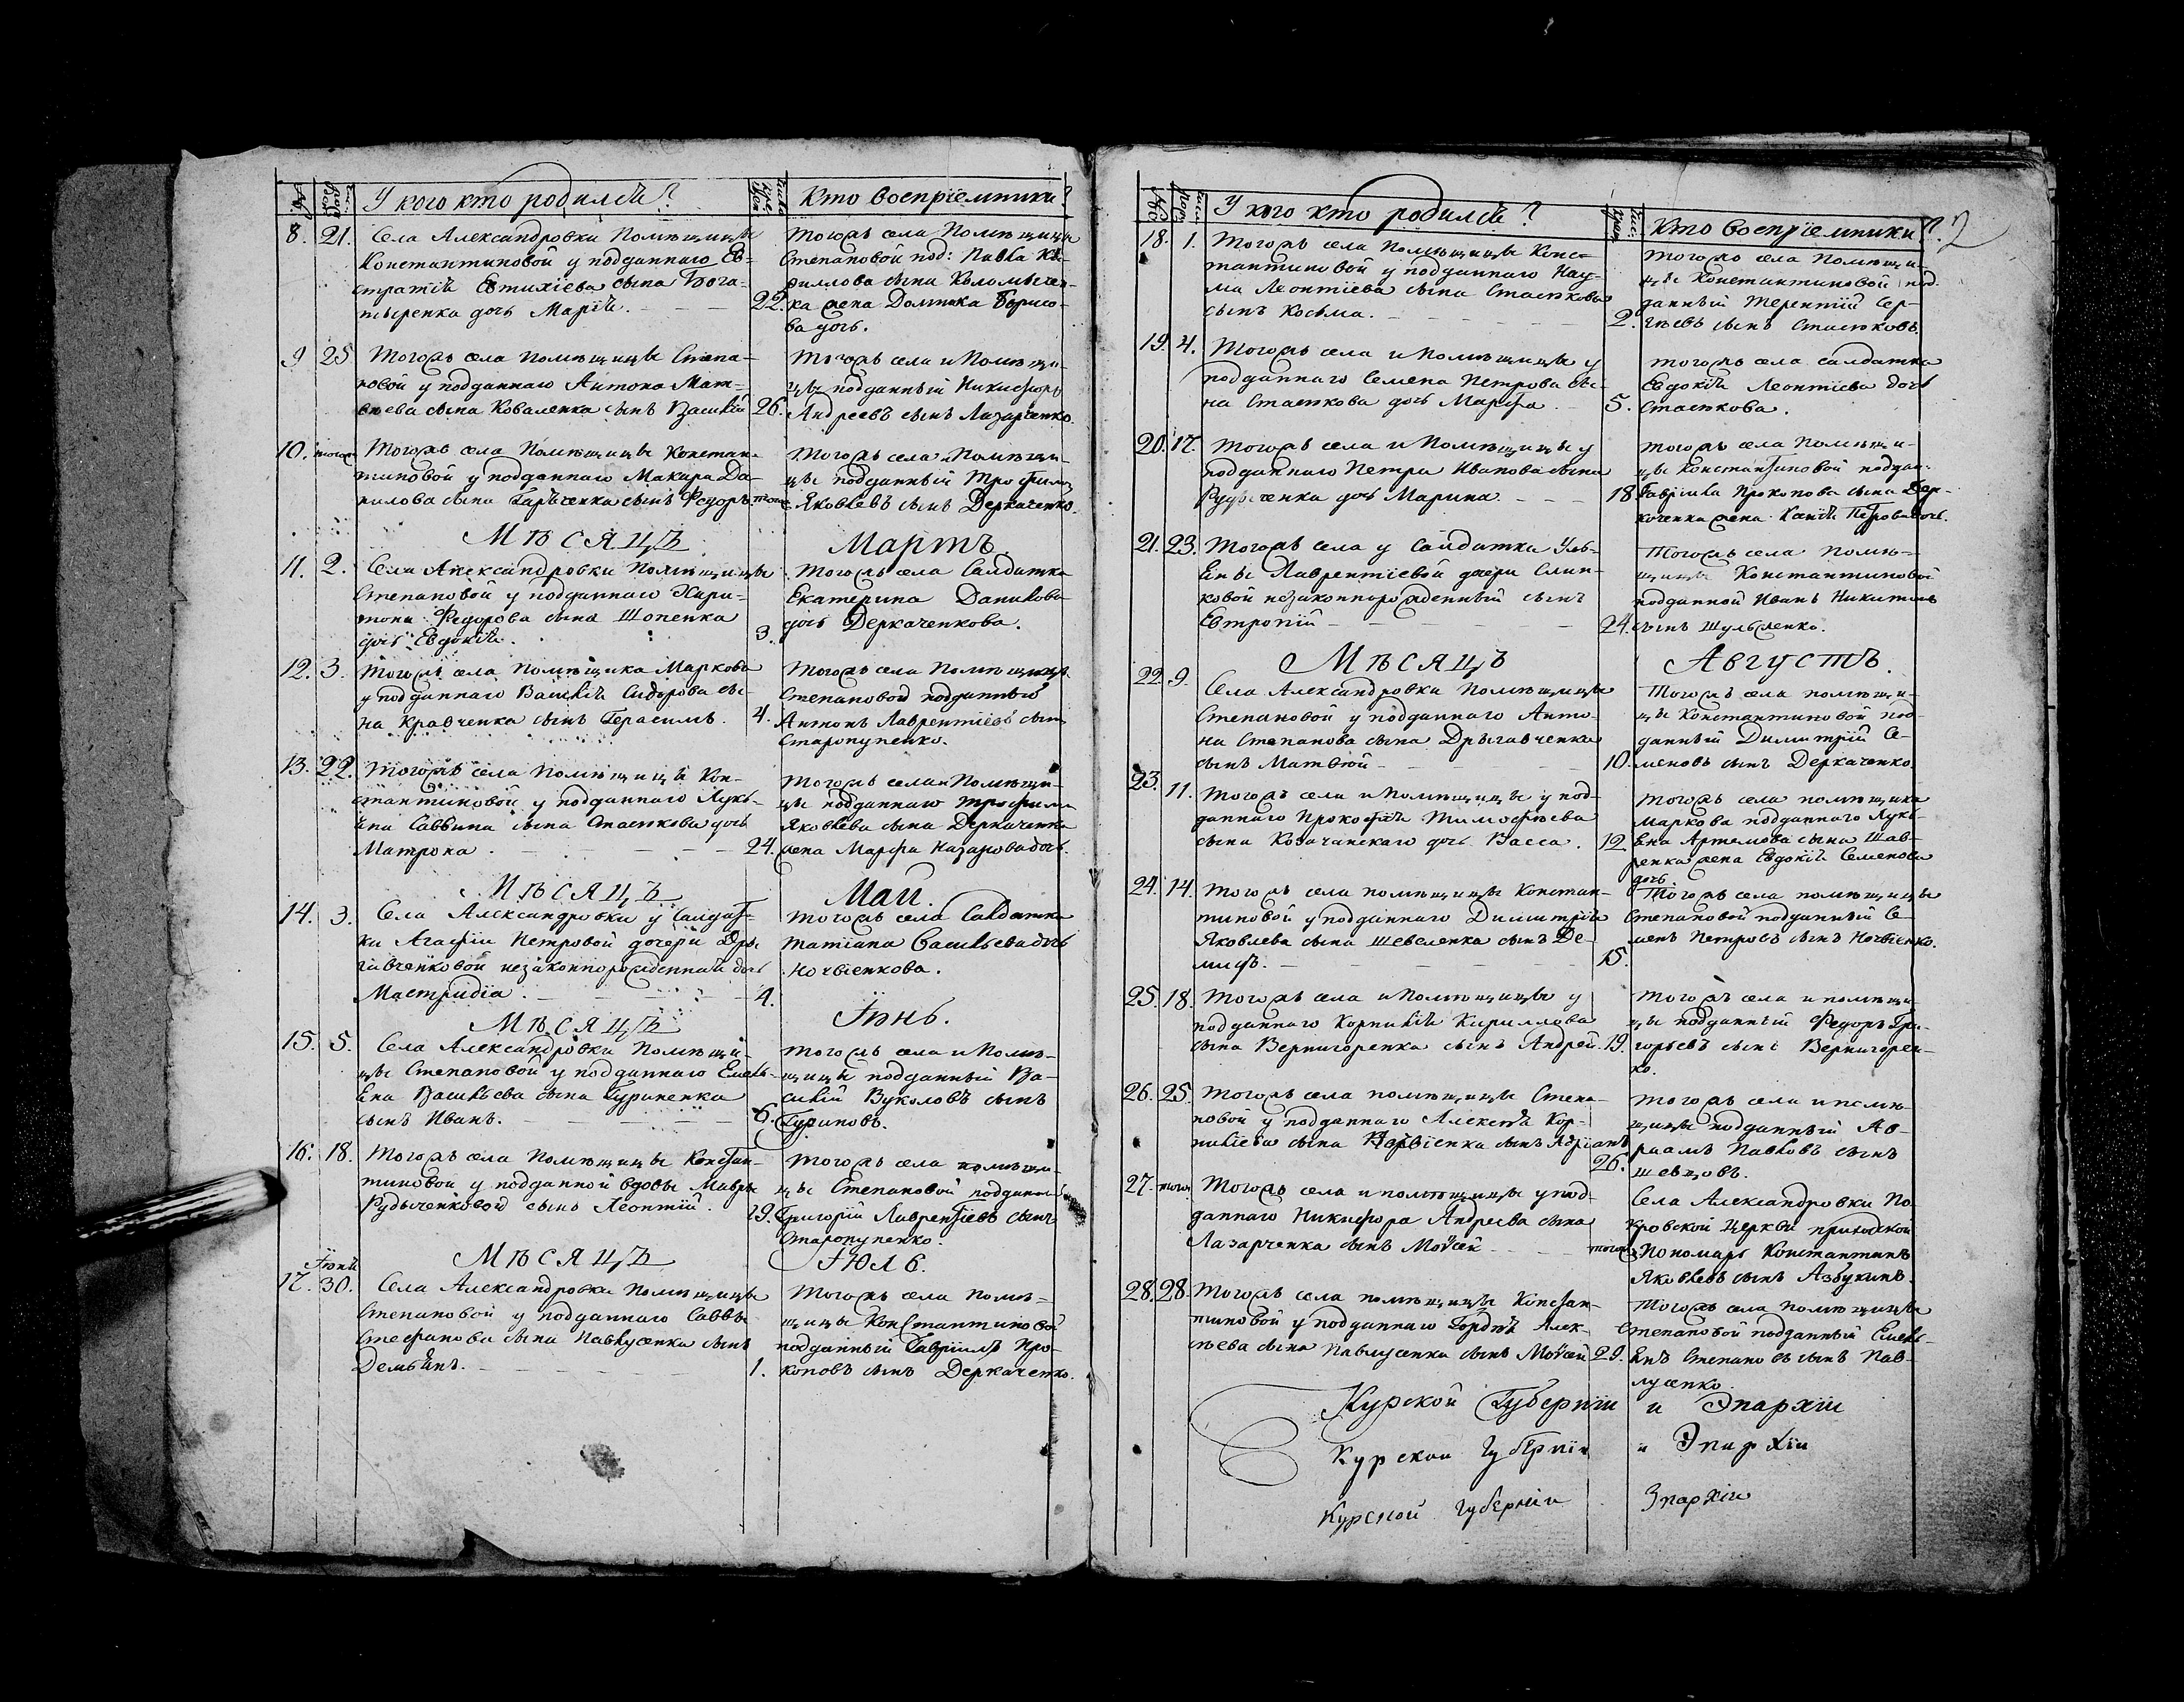 У кого кто родился?
Кто воспрїемники?
8. 21. Села Александровки Помѣщицы
Константиновой у подданнаго Ев-
стратїя Евтихїева сына Бога-
тыренка дочь Марїя.
Тогожъ села Помѣщицы
Степановой под: Павла Ки-
риллова сына
22. ка жена Домника Борисо-
ва дочь.
9 25 Тогожъ села Помѣщицы Степа-
новой у подданнаго Антона Мат-
вѣева сына Коваленка сынъ Василїй
Тогожъ села и Помѣщи-
цы подданный Никифоръ
26. Андреевъ сынъ Лазарченко
10. тогожъ Тогожъ села Помѣщицы Констан-
тиновой у подданнаго Макара Да-
нилова сына сынъ Федоръ.
Тогожъ села и Помѣщи-
цы подданный Трофимъ
тогожъ Яковлевъ сынъ Деркаченко.
Мѣсяцъ
Мартъ
11. 2. Села Александровки Помѣщицы
Степановой у подданнаго Хари-
тона Федорова сына Шопенка
дочь Евдокїя.
Тогожъ села Салдатка
Екатерина Данилова
3. дочь Деркаченкова.
12. 3. Тогожъ села Помѣщика Маркова
у подданнаго Василїя Сидорова сы-
на Кравченка сынъ Герасимъ.
Тогожъ села Помѣщицы
Степановой подданный
4. Антонъ Лаврентїевъ сынъ
Старопупенко.
13. 22. Тогожъ села Помѣщицы Кон-
стантиновой у подданнаго Лукь-
яна Саввина сына Стаенкова дочь
Матрона.
Тогожъ села и Помѣщи-
цы подданнаго Трофима
Яковлева сына Деркаченка
24. жена Марфа Назарова дочь.
Мѣсяцъ
Май.
14. 3. Села Александровки у Салдат-
ки Агафїи Петровой дочери Дры-
гавченковой незаконнорожденная дочь
Мастридїа.
Тогожъ села Салдатка
Татїана Васильева дочь
Ночвїенкова.
4.
Мѣсяцъ
Їюнь.
15. 5. Села Александровки Помѣщи-
цы Степановой у подданнаго Емель-
яна Васильева сына Гуриненка
сынъ Иванъ.
Тогожъ села и Помѣ-
щицы подданный Ва-
силїй Вуколовъ сынъ
6. Гуриновъ.
16. 18. Тогожъ села Помѣщицы Констан-
тиновой у подданной вдовы Мавры
Рудыченковой сынъ Леонтїй.
Тогожъ села помѣщи-
цы Степановой подданный
19. Григорїй Лаврентїевъ сынъ
Старопупенко.
Мѣсяцъ
Їюль.
Їюня
17. 30. Села Александровки Помѣщицы
Степановой у подданнаго Саввы
Стефанова сына Павлусенка сынъ
Демьянъ.
Тогожъ села Помѣ-
щицы Константиновой
подданный Гаврїилъ Про-
1. коповъ сынъ Деркаченко.
У кого кто родился?
Кто воспрїемники?
2
18. 1. Тогожъ села Помѣщицы Конс-
тантиновой у подданнаго Нау-
ма Леонтїева сына Стаенкова
сынъ Косьма.
Тогожъ села Помѣщи-
цы Константиновой под-
данный Терентїй Сер-
2. гѣевъ сынъ Стаенковъ.
19. 4. Тогожъ села и Помѣщицы у
подданнаго Семена Петрова сы-
на Стаенкова дочь Марфа.
Тогожъ села салдатка
Евдокїя Леонтїева дочь
5. Стаенкова.
20. 17. Тогожъ села и Помѣщицы у
подданнаго Петра Иванова сына
Рудыченка дочь Марина.
Тогожъ села Помѣщи-
цы Константиновой поддан-
18. Гаврїила Прокопова сына Дер-
каченка жена Ксенїя Петрова дочь.
21. 23. Тогожъ села у Салдатки Уль-
яны Лаврентїевой дочери Слип-
ковой незаконнорожденный сынъ
Евтропїй
Тогожъ села Помѣ-
щицы Константиновой
подданной Иванъ Никитинъ
24. сынъ Шульженко.
Мѣсяцъ
Августъ.
22. 9. Села Александровки Помѣщицы
Степановой у подданнаго Анто-
на Степанова сына Дрыгавченка
сынъ Матвѣй
Тогожъ села помѣщи-
цы Константиновой под-
данный Димитрїй Се-
10. меновъ сынъ Деркаченко.
23. 11. Тогожъ села и Помѣщицы у под-
даннаго Прокофїя Тимофѣева
сына Козачанскаго дочь Васса.
Тогожъ села помѣщика
Маркова подданнаго Лукь-
12. яна Артемова сына Шав-
ренка жена Евдокїя Семенова
дочь.
24. 14. Тогожъ села помѣщицы Констан-
тиновой у подданнаго Димитрїя
Яковлева сына Шевеленка сынъ Де-
мидъ.
Тогожъ села помѣщицы
Степановой подданный Се-
менъ Петровъ сынъ Ночвїенко.
15.
25. 18. Тогожъ села и Помѣщицы у
подданнаго Корнилїя Кириллова
сына Вернигоренка сынъ Андрей.
Тогожъ села и помѣщи-
цы подданный Федоръ Гри-
19. горьевъ сынъ Вернигорен-
ко.
26. 25. Тогожъ села помѣщицы Степа-
новой у подданнаго Алексѣя Кор-
нилїева сына сынъ Адрїанъ
Тогожъ села и помѣ-
щицы подданный Ав-
раамъ Павловъ сынъ
26. Шевцовъ.
27. того Тогожъ села и помѣщицы у под-
даннаго Никифора Андреева сына
Лазарченка сынъ Моѵсей
Села Александровки По-
кровской Церкви приходской
тогожъ Пономарь Константинъ
Яковлевъ сынъ Азбукинъ.
28. 28. Тогожъ села помѣщицы Констан-
тиновой у подданнаго Гордѣя Алек-
сѣева сына Павлусенка сынъ Моѵсей
Тогожъ села Помѣщицы
Степановой подданный Емель-
29. янъ Степановъ сынъ Пав-
лусенко.
Курской Губернїи и Эпархїи
Курской Губернїи и Эпархїи
Курской Губернїи Эпархїи